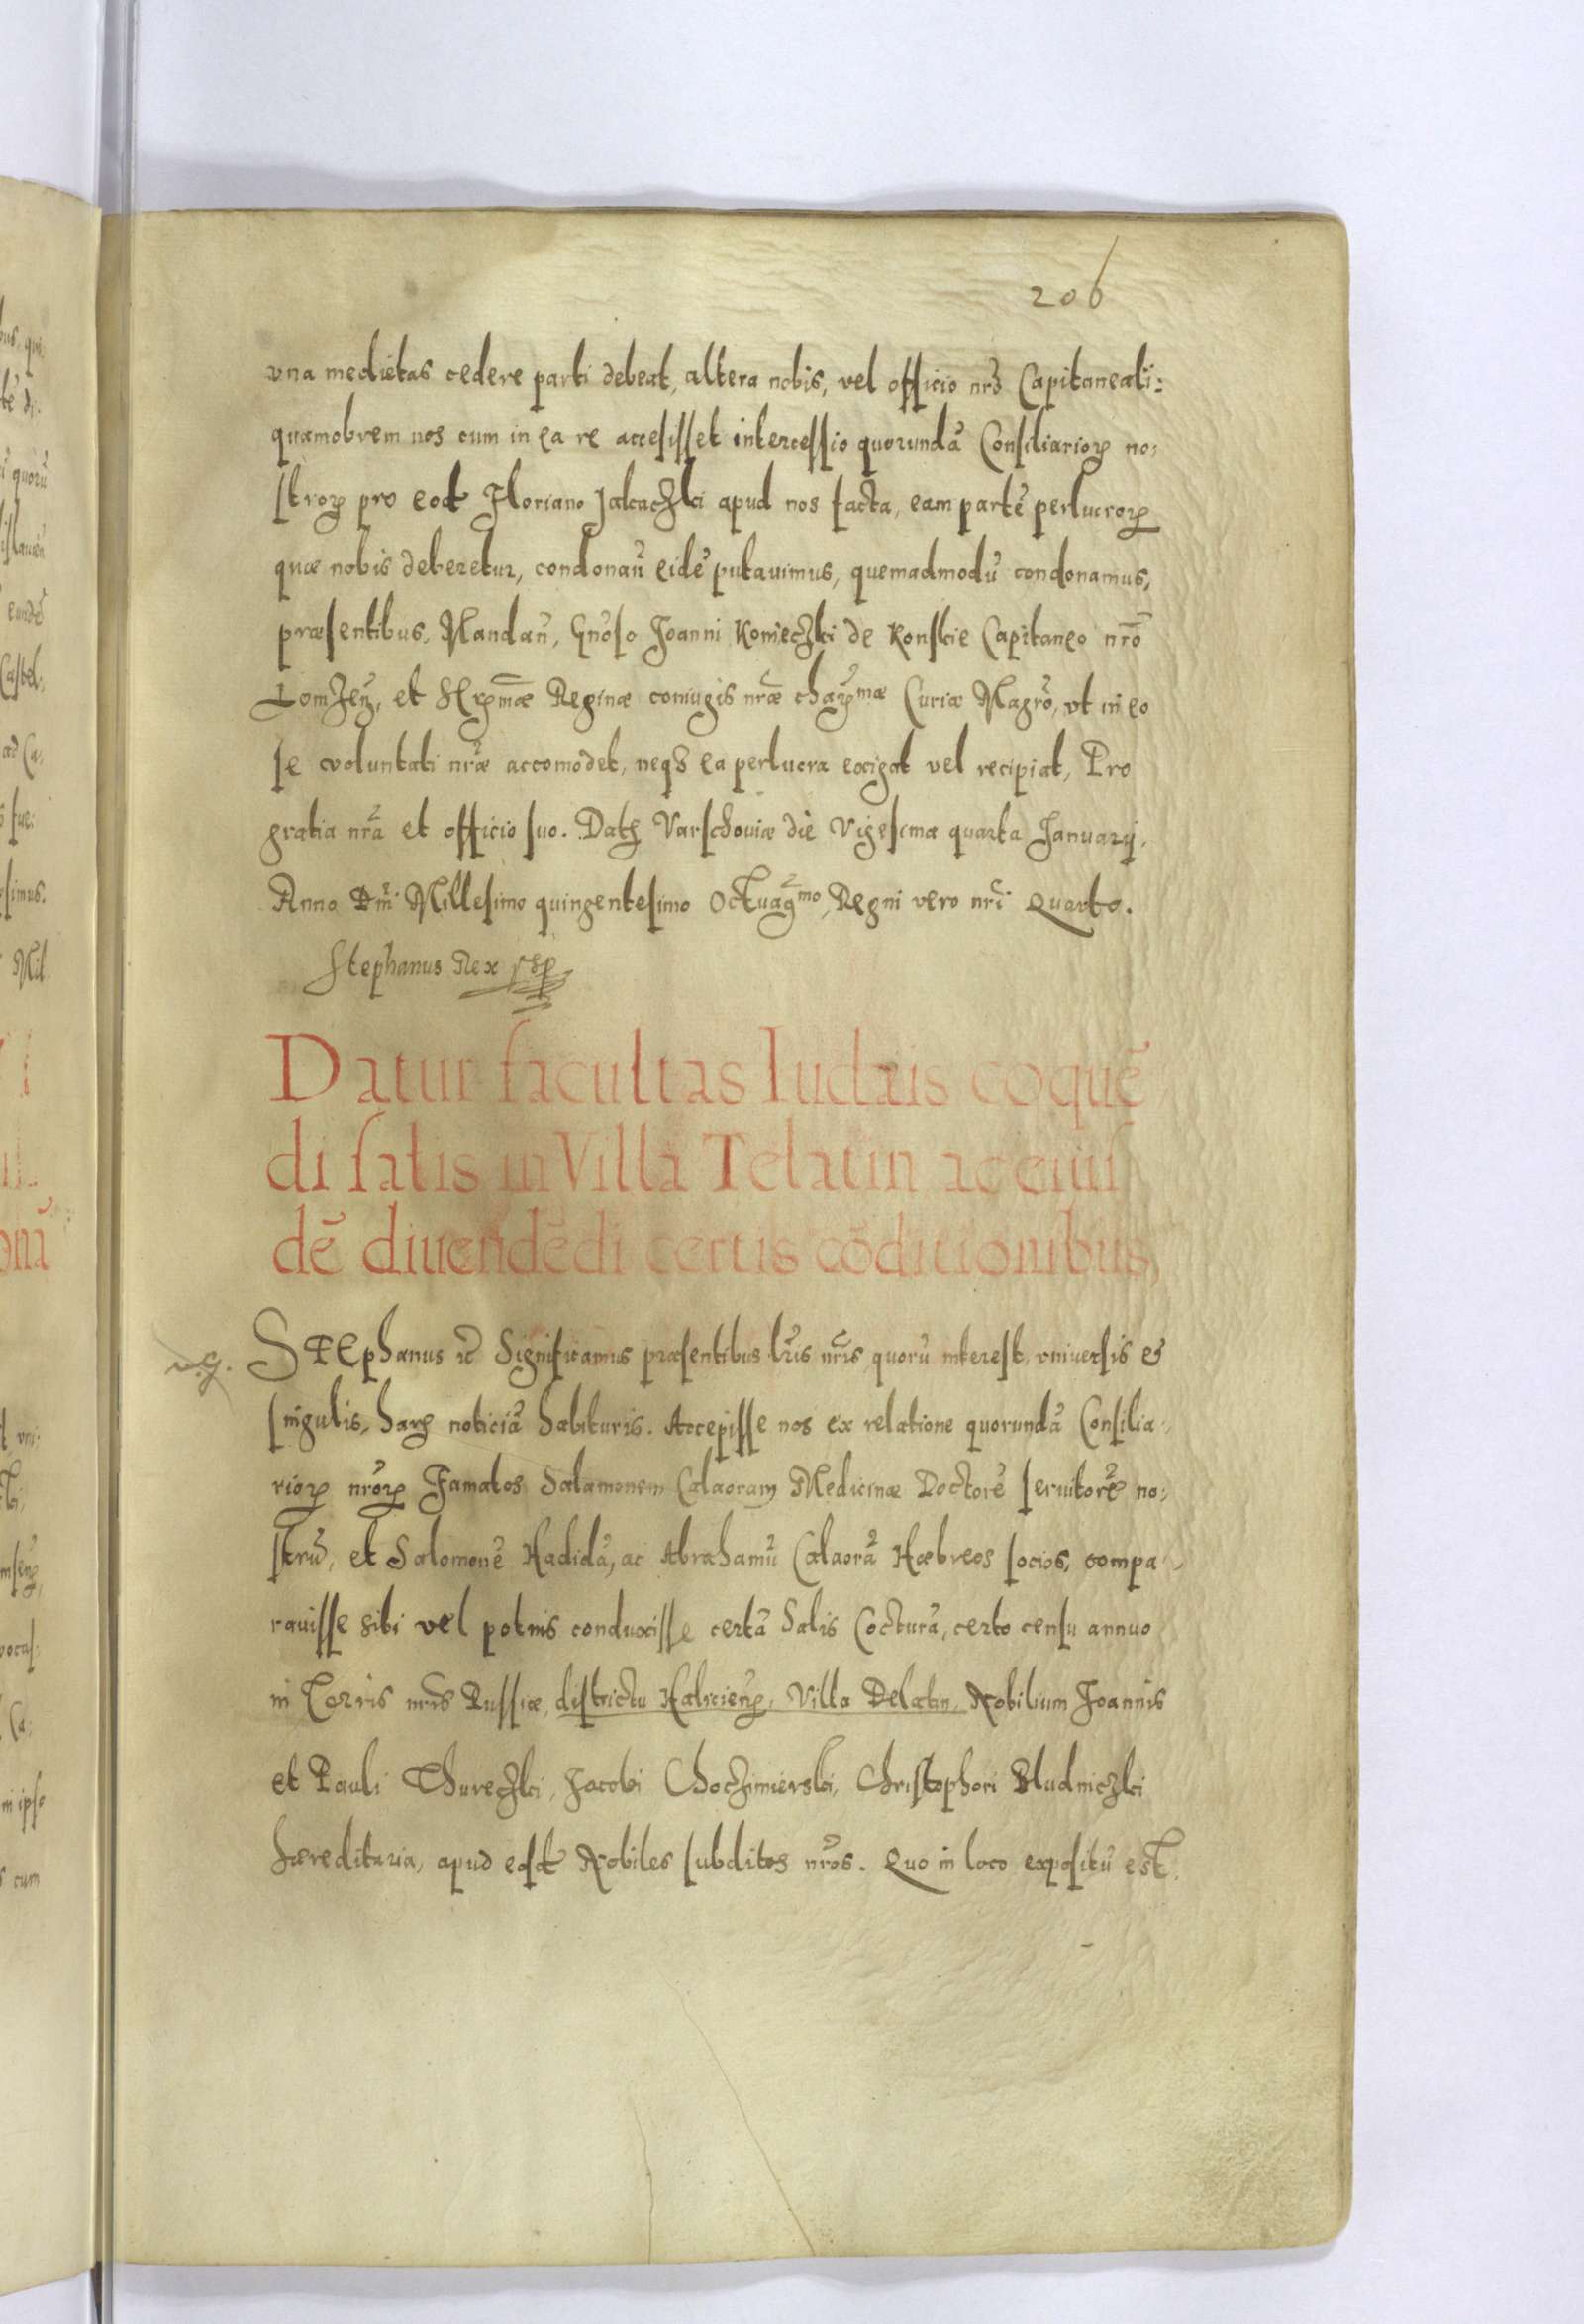 206
vna medietas cedere parti debeat, altera nobis, vel officio nrõ Capitaneali:
quamobrem nos cum in ea re accesisset intercessio quorundã Consiliariorꝝ no:
strorꝝ pro eod Floriano apud nos facta, eam partẽ perlucrorꝝ
quæ nobis deberetur, condonañ eidẽ putauimus, quemadmodũ condonamus,
præsentibus, Mandañ, Gñoso Joanni Konieczki de Konskie Capitaneo nrõ
Lomzeñ, et Reginæ coniugis nræ̃ chaꝝmæ Curiæ Magrõ, vt in eo
se voluntati nræ̃ accomodet, neqз ea perlucra exigat vel recipiat, Pro
gratia nrã et officio suo. Datꝝ Varschouiæ die Vigesima quarta Januarij.
Anno Dnĩ Millesimo quingentesimo Octuagmo, Regni vero nrĩ Quarto.
Stephanus Rex
Datur facultas Iudæis coquẽ
di salis in Villa Telatin ac eius
dẽ diuendẽdi certis cõditionibus,
STEphanus ꝛc̃ Significamus præsentibus lrĩs nrĩs quorũ interest, vniuersis et
singulis, harꝝ noticiã habituris. Accepisse nos ex relatione quorundã Consilia-
riorꝝ nrõrꝝ Famatos Salamonem Calaoram Medicinæ Doctorẽ seruitorẽ no:
strũ, et Salomonẽ Hadidã, ac Abrahamũ Calaorã Hæbreos socios, compa-
rauisse sibi vel potius conduxisse certã Salis Cocturã, certo censu annuo
in Terris nrĩs Russiæ, districtu Halicieñ, Villa Delatin, Nobilium Joannis
et Pauli Thureczki, Jacobi Choczimierski, Christophori Bludniczki
hæreditaria, apud eosd Nobiles subditos nrõs. Quo in loco expositũ est.